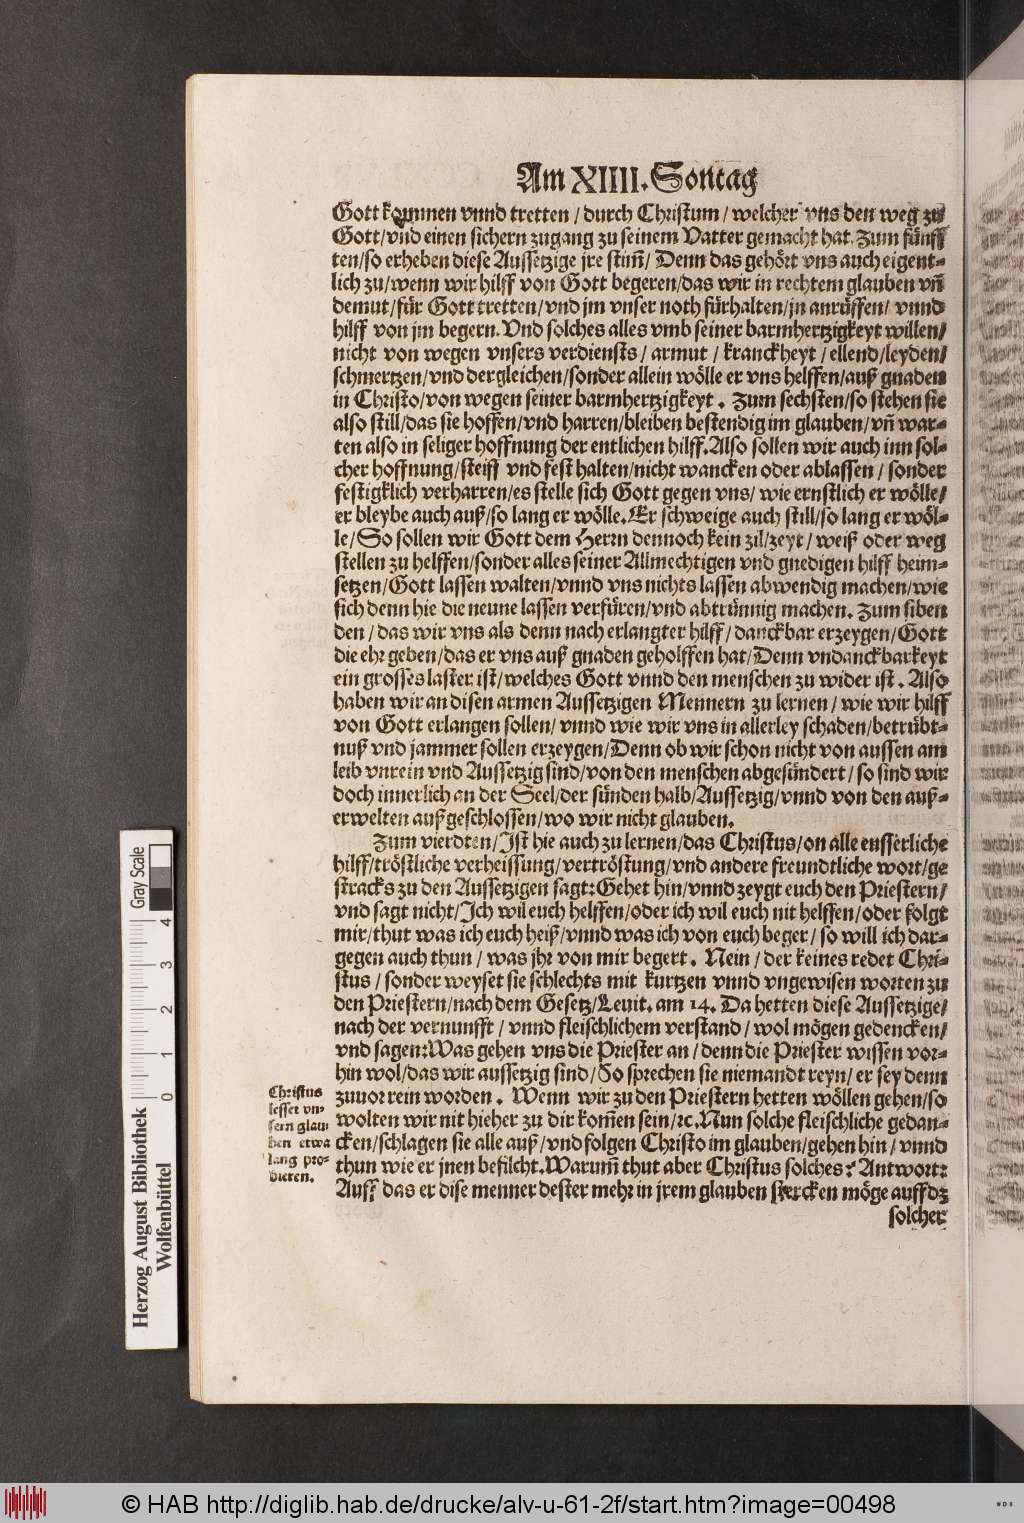 Am XIIII. Sontag
Gott kommen vnnd tretten / durch Christum / welcher vns den weg zu
Gott/vnd einen sichern zugang zu seinem Vatter gemacht hat. Zum fünff
ten/so erheben diese Aussetzige jre stim̃/ Denn das gehört vns auch eigent-
lich zu/wenn wir hilff von Gott begeren/das wir in rechtem glauben vñ
demut/für Gott tretten/vnd jm vnser noth fürhalten/jn anrüffen/ vnnd
hilff von jm begern. Vnd solches alles vmb seiner barmhertzigkeyt willen/
nicht von wegen vnsers verdiensts / armut / kranckheyt / ellend/leyden/
schmertzen/vnd dergleichen/sonder allein wölle er vns helffen/auß gnaden
in Christo/von wegen seiner barmhertzigkeyt . Zum sechsten/so stehen sie
also still/das sie hoffen/vnd harren/bleiben bestendig im glauben/vñ war-
ten also in seliger hoffnung der entlichen hilff. Also sollen wir auch inn sol-
cher hoffnung/steiff vnd fest halten/nicht wancken oder ablassen / sonder
festigklich verharren/es stelle sich Gott gegen vns/ wie ernstlich er wölle/
er bleybe auch auß/so lang er wölle. Er schweige auch still/so lang er wöl-
le/So sollen wir Gott dem Herrn dennoch kein zil/zeyt / weiß oder weg
stellen zu helffen/sonder alles seiner Allmechtigen vnd gnedigen hilff heim-
setzen/Gott lassen walten/vnnd vns nichts lassen abwendig machen/wie
sich denn hie die neune lassen verfüren/vnd abtrünnig machen. Zum siben
den / das wir vns als denn nach erlangter hilff/ danckbar erzeygen/Gott
die ehr geben/das er vns auß gnaden geholffen hat/Denn vndanckbarkeyt
ein grosses laster ist/welches Gott vnnd den menschen zu wider ist . Also
haben wir an disen armen Aussetzigen Mennern zu lernen / wie wir hilff
von Gott erlangen sollen/ vnnd wie wir vns in allerley schaden/betrübt-
nuß vnd jammer sollen erzeygen/Denn ob wir schon nicht von aussen am
leib vnrein vnd Aussetzig sind/von den menschen abgesündert / so sind wir
doch innerlich an der Seel/der sünden halb/Aussetzig/vnnd von den auß-
erwelten außgeschlossen/wo wir nicht glauben.
Zum vierdten/Ist hie auch zu lernen/das Christus/on alle eusserliche
hilff/tröstliche verheissung/vertröstung/vnd andere freundtliche wort/ge
stracks zu den Aussetzigen sagt: Gehet hin/vnnd zeygt euch den Priestern/
vnd sagt nicht/Ich wil euch helffen/oder ich wil euch nit helffen/oder folgt
mir/thut was ich euch heiß/vnnd was ich von euch beger / so will ich dar-
gegen auch thun / was jhr von mir begert . Nein / der keines redet Chri-
stus / sonder weyset sie schlechts mit kurtzen vnnd vngewisen worten zu
den Priestern/nach dem Gesetz/Leuit. am 14. Da hetten diese Aussetzige/
nach der vernunfft / vnnd fleischlichem verstand / wol mögen gedencken/
vnd sagen: Was gehen vns die Priester an / denn die Priester wissen vor-
hin wol/das wir aussetzig sind/ So sprechen sie niemandt reyn/ er sey denn
zuuor rein worden . Wenn wir zu den Priestern hetten wöllen gehen/so
wolten wir nit hieher zu dir kom̃en sein/ꝛc. Nun solche fleischliche gedan-
cken/schlagen sie alle auß/vnd folgen Christo im glauben/gehen hin / vnnd
thun wie er jnen befilcht. Warum̃ thut aber Christus solches? Antwort:
Auff das er dise menner dester mehr in jrem glauben stercken möge auff dz
solcher
Christus
lesset vn-
sern glau
ben etwa
lang pro-
bieren.
Herzog August Bibliothek
Wolfenbüttel
Gray Scale
0 1 2 3 4
© HAB http://diglib.hab.de/drucke/alv-u-61-2f/start.htm?image=00498
WDB